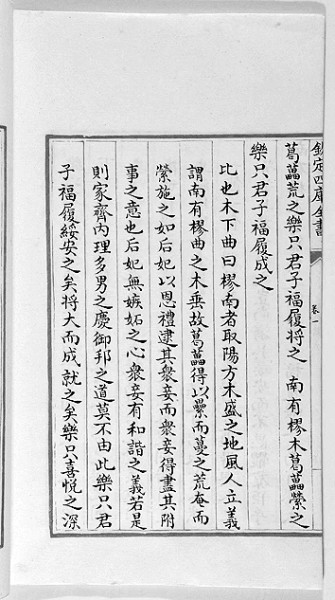 欽定四庫全書
卷一
葛藟荒之樂只君子福履將之　南有樛木葛藟縈之
樂只君子福履成之
比也木下曲曰樛南者取陽方木盛之地風人立義
謂南有樛曲之木垂故葛藟得以纍而蔓之荒奄而
縈施之如后妃以恩禮逮其衆妾而衆妾得盡其附
事之意也后妃無嫉妬之心衆妾有和諧之義若是
則家齊内理多男之慶御邦之道莫不由此樂只君
子福履綏安之矣將大而成就之矣樂只喜悦之深